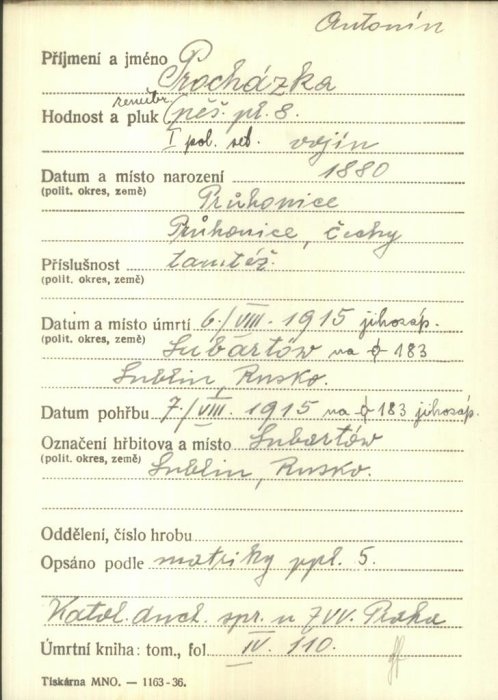 Antonín
Příjmení a jméno Procházka
zeměbr.
Hodnost a pluk pěš. pl. 8.
I pol. set. vojín
Datum a místo narození 1880
(polit. okres, země) Průhonice
Průhonice, Čechy
Příslušnost tamtéž.
(polit. okres, země)
Datum a místo úmrtí 6./VIII. 1915 jihozáp.
(polit. okres, země) Lubartów na 183
Lublin, Rusko.
Datum pohřbu 7./VIII. 1915 na 183 jihozáp.
Označení hřbitova a místo Lubartów
(polit. okres, země) Lublin, Rusko.
Oddělení, číslo hrobu
Opsáno podle matriky ppl. 5.
Katol. duch. spr. u ZVV. Praha
Úmrtní kniha: tom., fol. IV. 110.
Tiskárna MNO. — 1163-36.